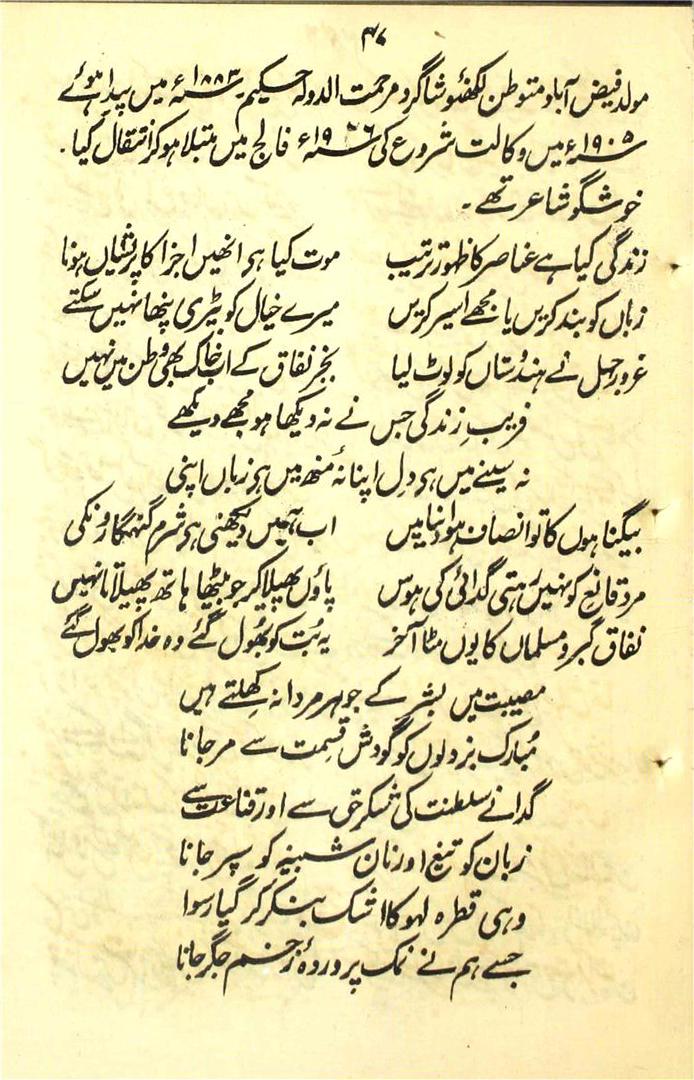 ۴۷
مولد فیض آباد متوطن لکھنؤ شاگرد مرحمت الدولہ حکیم۔ ۱۸۸۳ء میں پیدا ہوئے
۱۹۰۵ء میں وکالت شروع کی ۱۹۲۶ء فالج میں مبتلا ہو کر انتقال کیا۔
خوشگو شاعر تھے۔
زندگی کیا ہے عناصر کا ظہورِ ترتیب موت کیا ہی انھیں اجزا کا پریشاں ہونا
زباں کو بند کریں یا مجھے اسیر کریں میرے خیال کو بیڑی پنھا نہیں سکتے
غرور جہل نے ہندوستاں کو لوٹ لیا بجز نفاق کے اب خاک بھی وطن میں نہیں
فریب زندگی جس نے نہ دیکھا ہو مجھے دیکھے
نہ سینے میں ہی دل اپنا نہ منھ میں ہی زباں اپنی
بیگناہوں کا تو انصاف ہوا دنیا میں اب ہمیں دیکھنی ہی شرم گنہگارونکی
مرد قانع کو نہیں رہتی گدائی کی ہوس پاؤں پھیلا کر جو بیٹھا ہاتھ پھیلاتا نہیں
نفاق گبرو مسلماں کا یوں مٹا آخر یہ بُت کو بھول گئے وہ خدا کو بھول گئے
مصیبت میں بشر کے جوہر مردانہ کھلتے ہیں
مُبارک بزدلوں کو گردش قسمت سے مر جانا
گدانے سلطنت کی شکر حق سے اور قناعت سے
زبان کو تیغ اور نان شبینہ کو سپر جانا
وہی قطرہ لہو کا اشک بنکر کر گیا رسوا
جسے ہم نے نمک پروردۂ زخم جگر جانا